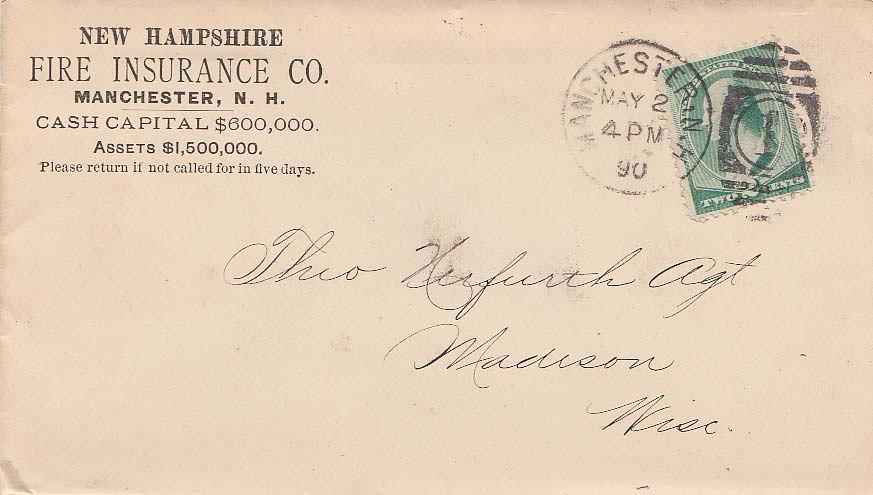 NEW HAMPSHIRE
FIRE INSURANCE CO.
MANCHESTER, N. H.
CASH CAPITAL $600,000.
ASSETS $1,500,000.
Please return if not called for in five days.
MANCHESTER N.H.
MAY 2
4 PM
90
TWO CENTS
Theo Herfurth Agt
Madison
Wisc.